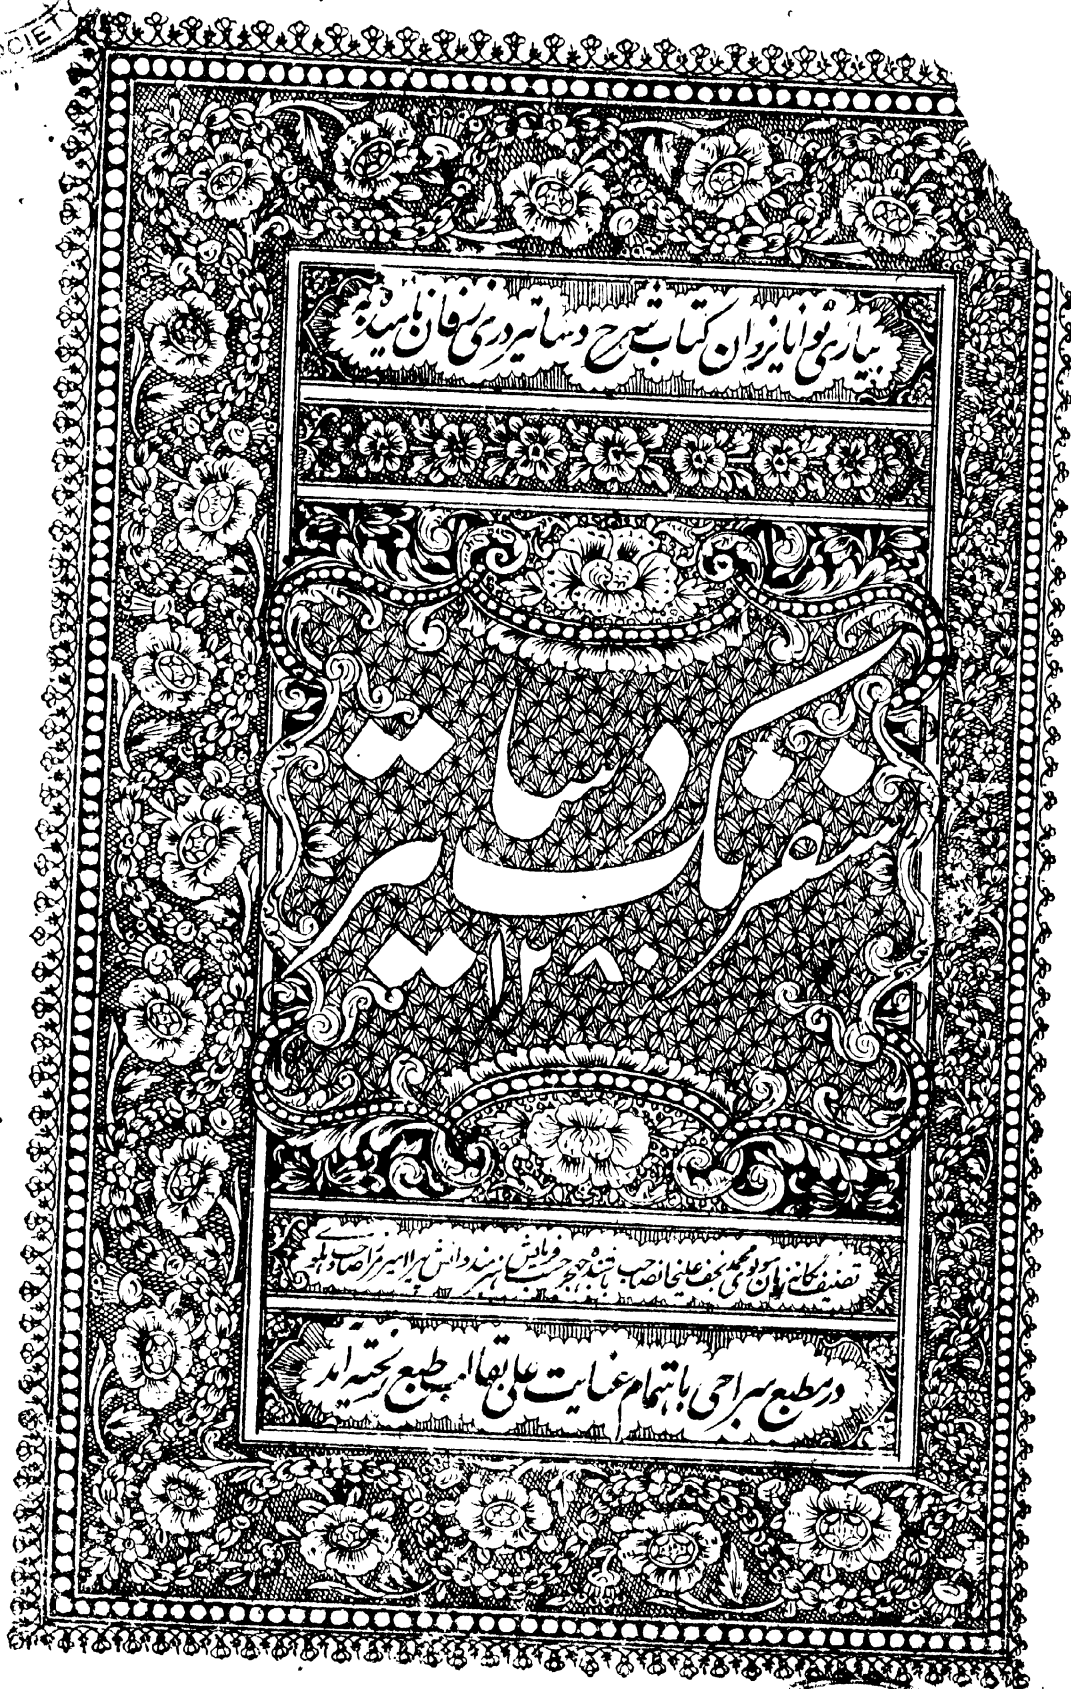 OCIETY
بیاری توانا یزدان کتاب شرح دساتیر دری زفان نامیده
سفرنگ دساتیر
۱۲۸۰
تصنیف مولوی محمد نجف علیخانصاحب باشنده جهجر حسب فرمایش هنرمند دانش پیرا میرزا صاحب
در مطبع سراجی باهتمام عنایت علی بقالب طبع ریخته آمد